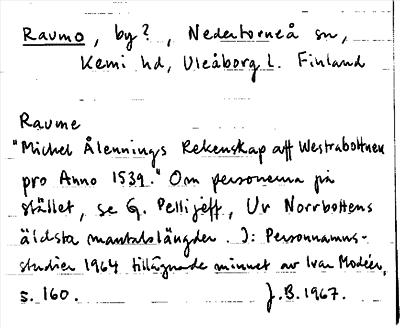 Raumo, by?, Nedertorneå sn,
Kemi hd, Uleåborg l. Finland
Raume
"Michel Ålennings Rekenskap aff Westrabottnen
pro Anno 1539." Om personerna på
stället, se G. Pellijeff, Ur Norrbottens
äldsta mantalslängder. I: Personnamns-
studier 1964 tillägnade minnet av Ivar Modéer,
s. 160. J.B. 1967.